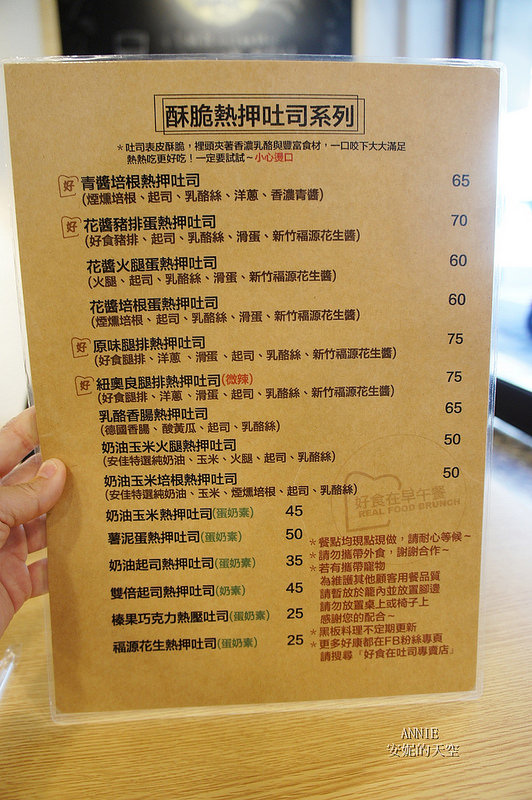 酥脆熱押吐司系列
*吐司表皮酥脆，裡頭夾著香濃乳酪與豐富食材，一口咬下大大滿足
熱熱吃更好吃！一定要試試~小心燙口
好 青醬培根熱押吐司 65
(煙燻培根、起司、乳酪絲、洋蔥、香濃青醬)
好 花醬豬排蛋熱押吐司 70
(好食豬排、起司、乳酪絲、滑蛋、新竹福源花生醬)
花醬火腿蛋熱押吐司 60
(火腿、起司、乳酪絲、滑蛋、新竹福源花生醬)
花醬培根蛋熱押吐司 60
(煙燻培根、起司、乳酪絲、滑蛋、新竹福源花生醬)
好 原味腿排熱押吐司 75
(好食腿排、洋蔥、滑蛋、起司、乳酪絲、新竹福源花生醬)
好 紐奧良腿排熱押吐司(微辣) 75
(好食腿排、洋蔥、滑蛋、起司、乳酪絲、新竹福源花生醬)
乳酪香腸熱押吐司 65
(德國香腸、酸黃瓜、起司、乳酪絲)
奶油玉米火腿熱押吐司 50
(安佳特選純奶油、玉米、火腿、起司、乳酪絲)
奶油玉米培根熱押吐司 50
(安佳特選純奶油、玉米、煙燻培根、起司、乳酪絲)
奶油玉米熱押吐司(蛋奶素) 45
薯泥蛋熱押吐司(蛋奶素) 50
奶油起司熱押吐司(蛋奶素) 35
雙倍起司熱押吐司(奶素) 45
榛果巧克力熱壓吐司(蛋奶素) 25
福源花生熱押吐司(蛋奶素) 25
好食在早午餐
REAL FOOD BRUNCH
*餐點均現點現做，請耐心等候~
*請勿攜帶外食，謝謝合作~
*若有攜帶寵物
為維護其他顧客用餐品質
請暫放於籠內並放置腳邊
請勿放置桌上或椅子上
感謝您的配合~
*黑板料理不定期更新
*更多好康都在FB粉絲專頁
請搜尋「好食在吐司專賣店」
ANNIE
安妮的天空